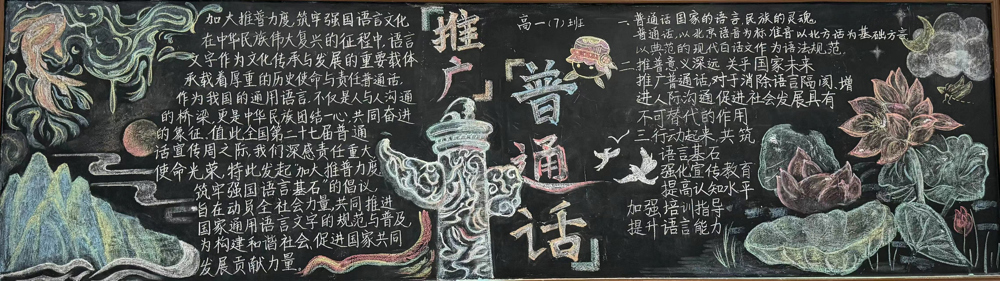 加大推普力度,筑牢强国语言文化
在中华民族伟大复兴的征程中,语言
文字作为文化传承与发展的重要载体
承载着厚重的历史使命与责任普通话.
作为我国的通用语言,不仅是人与人沟通
的桥梁,更是中华民族团结一心,共同奋进
的象征,值此全国第二十七届普通
话宣传周之际,我们深感责任重大
使命光荣,特此发起"加大推普力度
筑牢强国语言基石"的倡议,
旨在动员全社会力量,共同推进
国家通用语言文字的规范与普及
为构建和谐社会,促进国家共同
发展贡献力量.
「推广」
高一(7)班
「普通话」
一.普通话国家的语言,民族的灵魂
普通话,以北京语音为标准音以北方话为基础方言
以典范的现代白话文作为语法规范.
二推普意义深远,关乎国家未来
推广普通话,对于消除语言隔阂,增
进人际沟通,促进社会发展具有
不可替代的作用
三行动起来,共筑
语言基石
强化宣传教育
提高认知水平
加强培训指导
提升语言能力